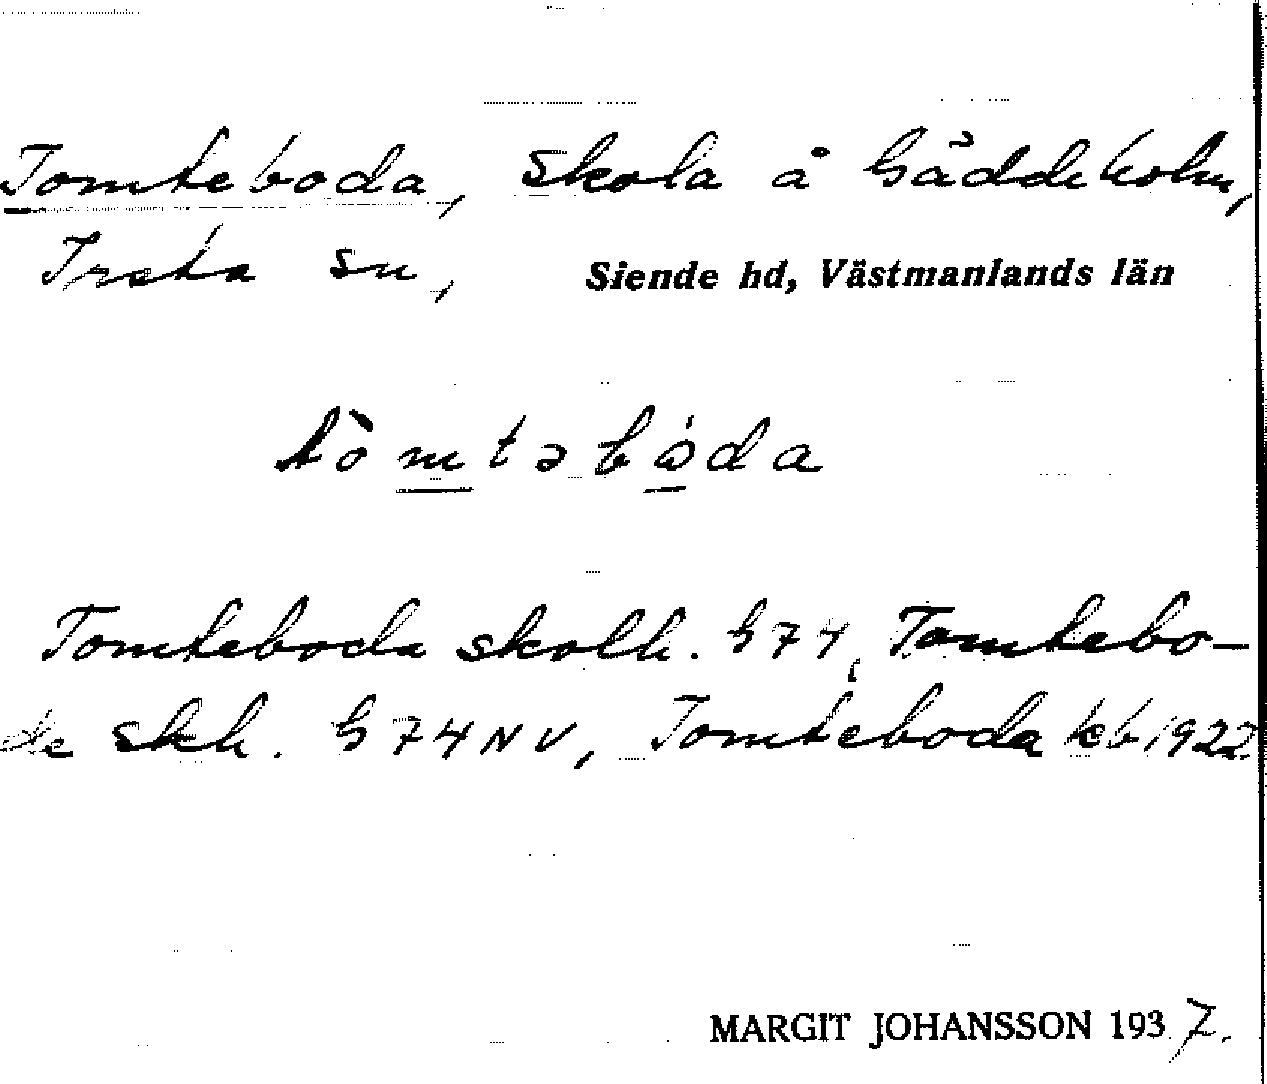 Tomteboda, skola å Gäddeholm,
Irsta sn, Siende hd, Västmanlands län
tòmtəbọ́da
Tomteboda skolh. G74, Tomtebo-
da skh. G74NV, Tomteboda kb 1922.
MARGIT JOHANSSON 1937.